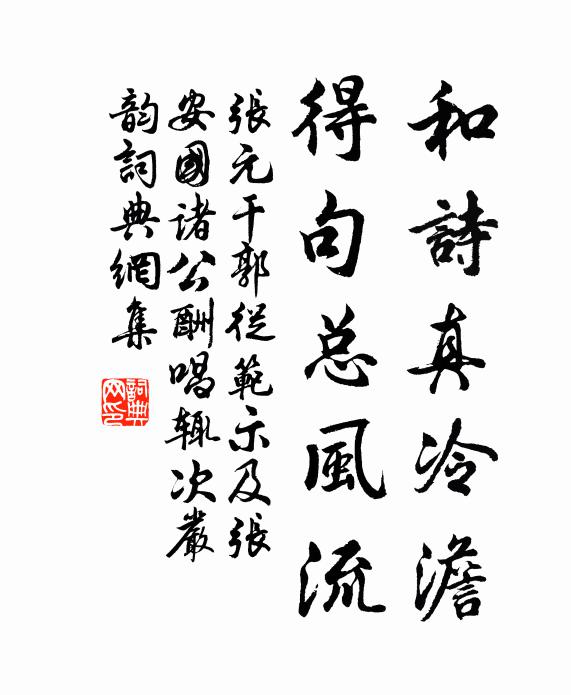 和詩真冷澹
得句总風流
張元干郭從範示及張
安國諸公酬唱辄次嚴
韵詞典網集
詞典
网印